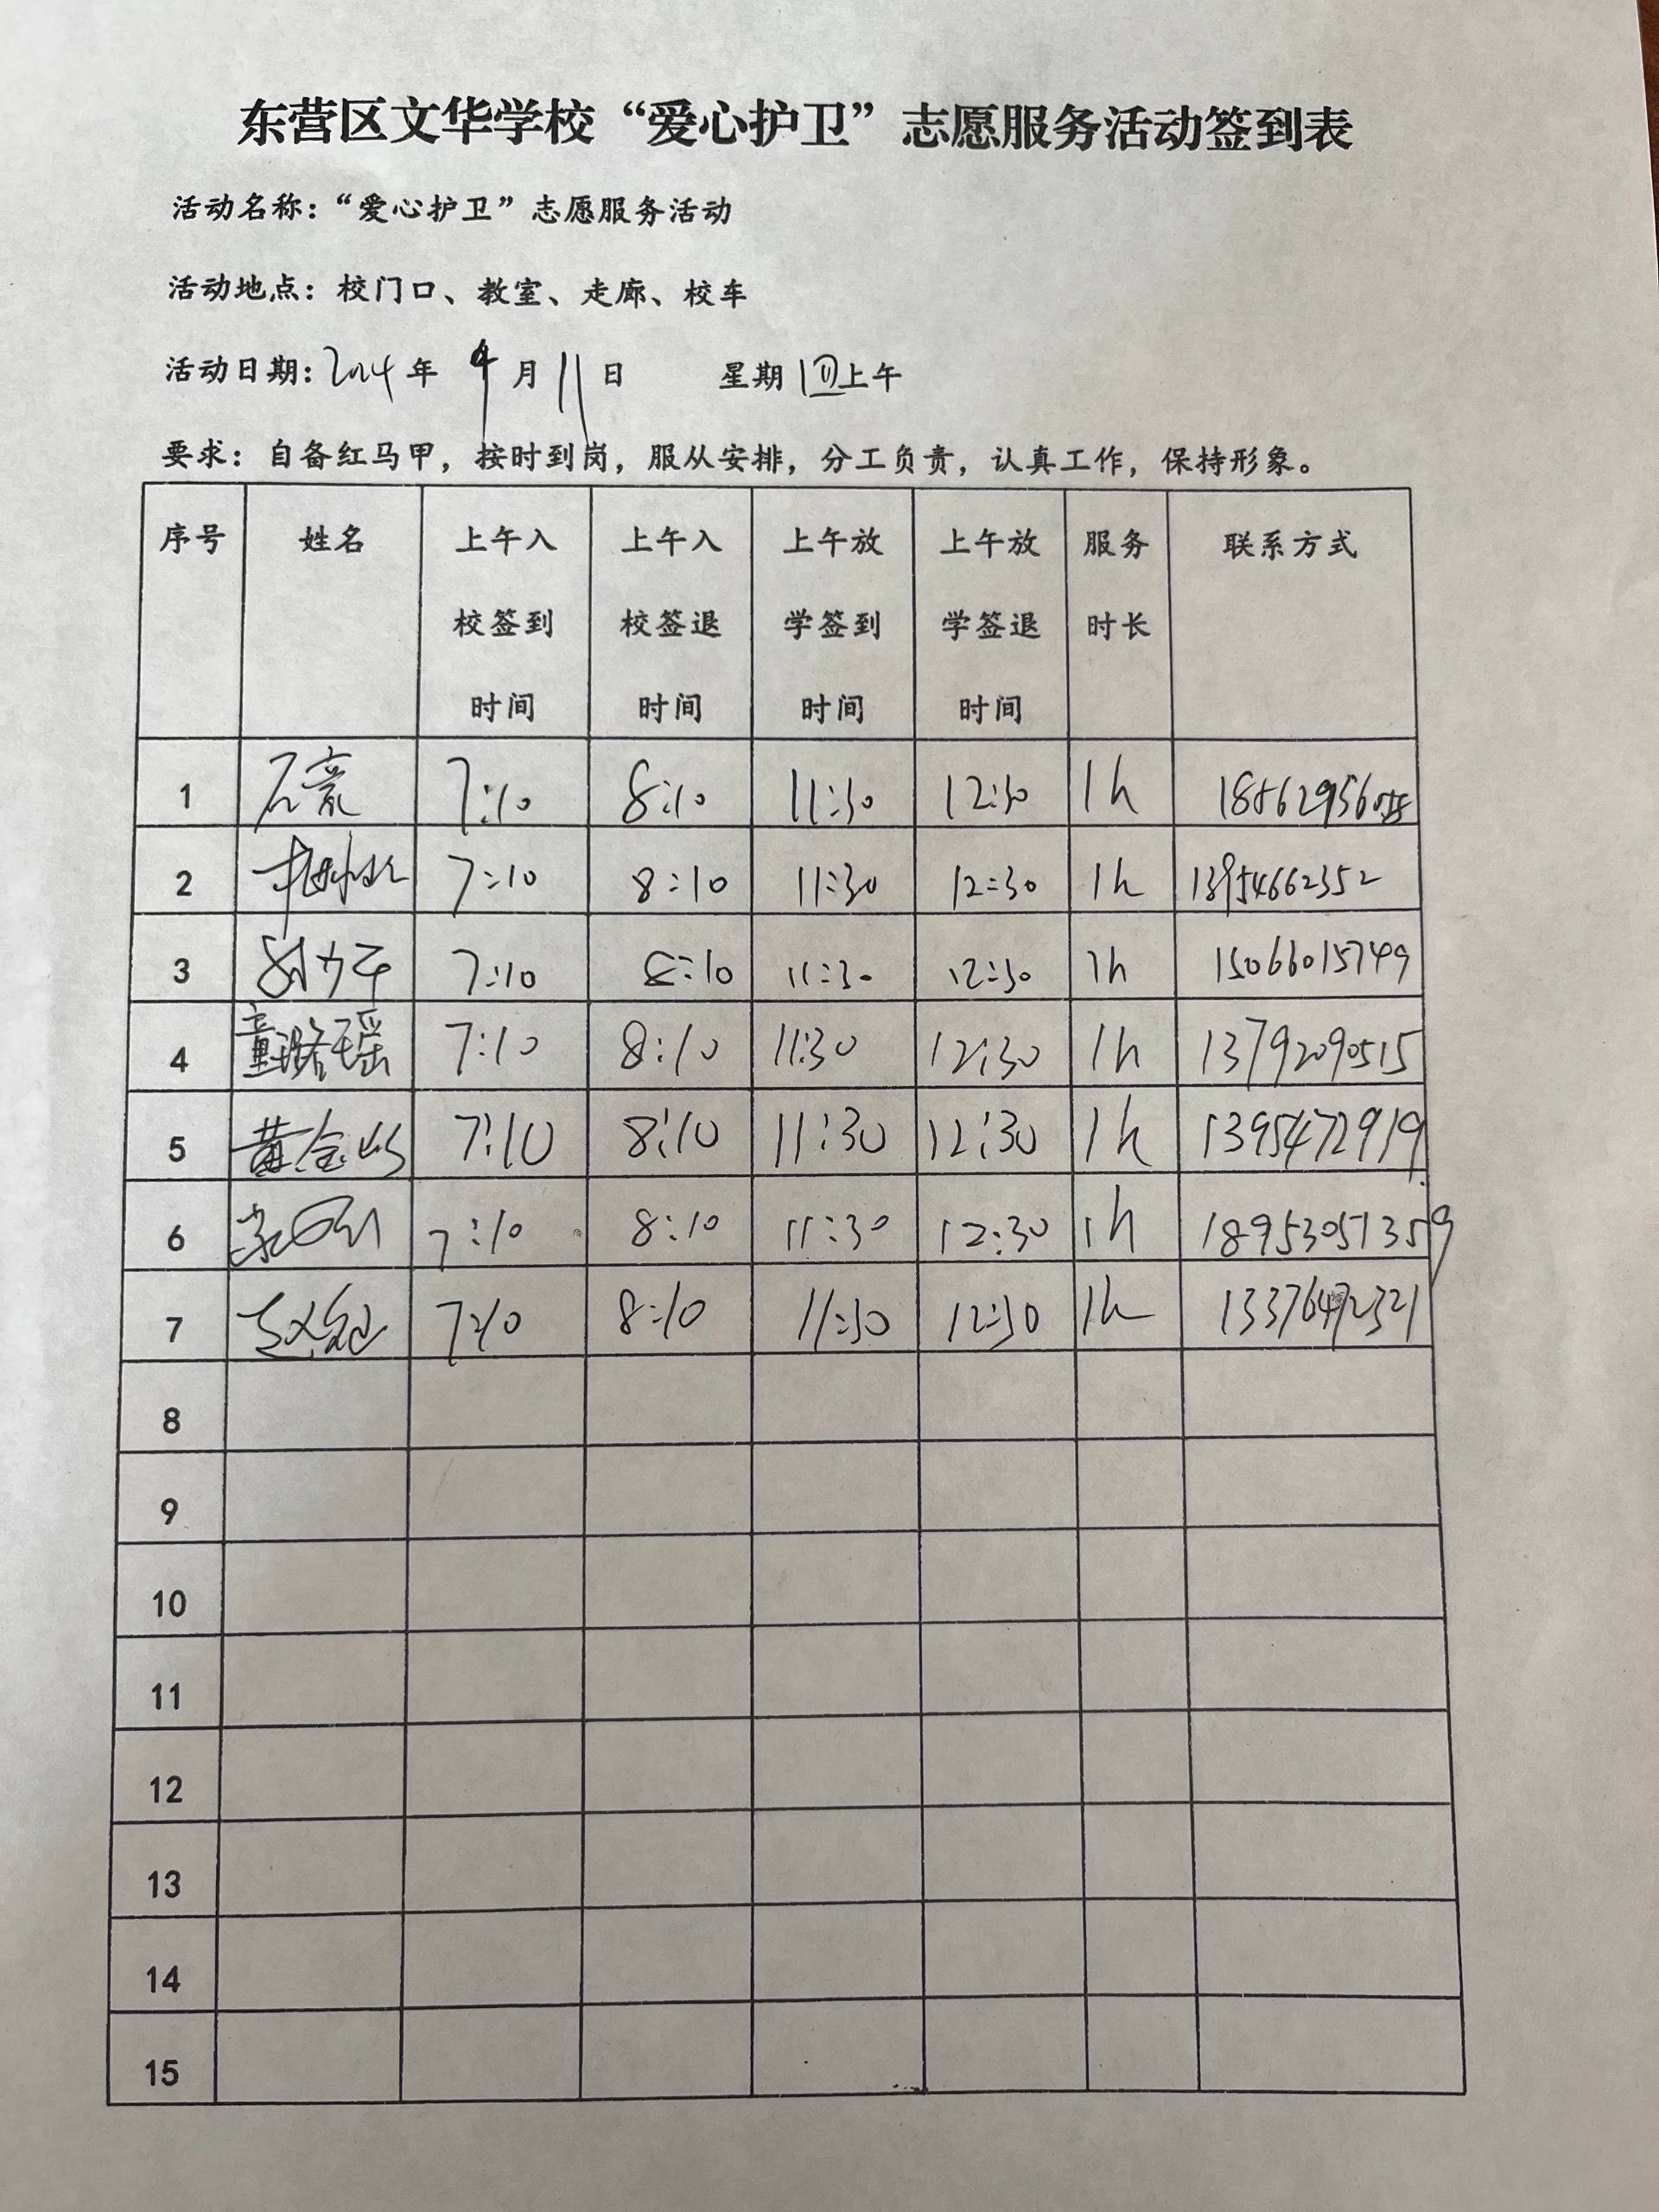 东营区文华学校“爱心护卫”志愿服务活动签到表
活动名称：“爱心护卫”志愿服务活动
活动地点：校门口、教室、走廊、校车
活动日期：2024年 4月 11日 星期四上午
要求：自备红马甲，按时到岗，服从安排，分工负责，认真工作，保持形象。
序号 姓名 上午入校签到时间 上午入校签退时间 上午放学签到时间 上午放学签退时间 服务时长 联系方式
1 7:10 8:10 11:30 12:30 1h
2 7:10 8:10 11:30 12:30 1h 13954662352
3 7:10 8:10 11:30 12:30 1h 15066015749
4 童璐瑶 7:10 8:10 11:30 12:30 1h 13792090515
5 7:10 8:10 11:30 12:30 1h 1395472919
6 7:10 8:10 11:30 12:30 1h 18953051359
7 7:10 8:10 11:30 12:30 1h
8
9
10
11
12
13
14
15